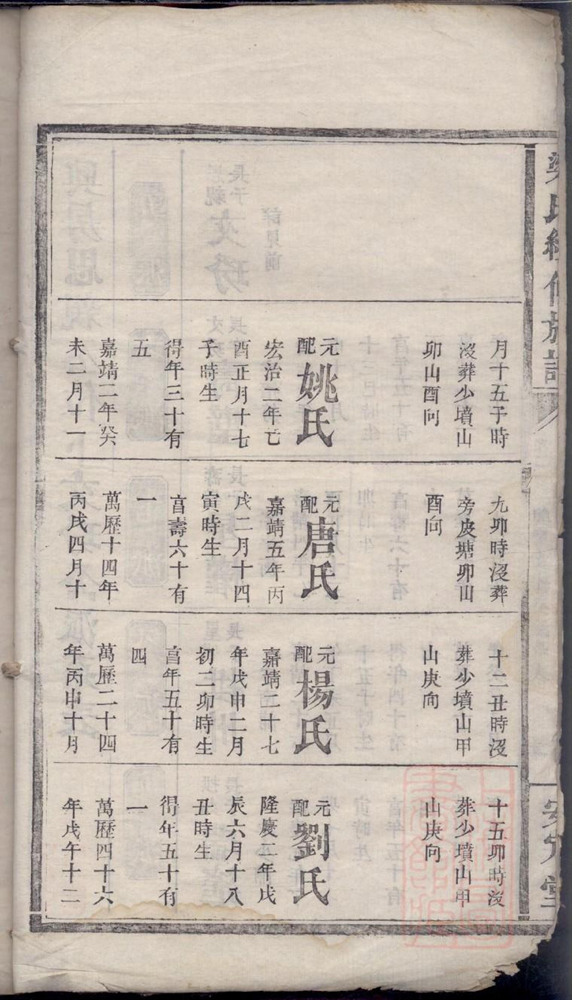 氏
修族譜
安定堂
月十五子時
沒葬少墳山
卯山酉向
元配姚氏
宏治二年己
酉正月十七
子時生
得年三十有
五
嘉靖二年癸
未二月十一
九卯時沒葬
旁皮塘卯山
酉向
元配唐氏
嘉靖五年丙
戌二月十四
寅時生
享壽六十有
一
萬歷十四年
丙戌四月十
十二丑時沒
葬少墳山甲
山庚向
元配楊氏
嘉靖二十七
年戊申二月
初二卯時生
享年五十有
四
萬歷二十四
年丙申十月
十五卯時沒
葬少墳山甲
山庚向
元配劉氏
隆慶二年戊
辰六月十八
丑時生
得年五十有
一
萬歷四十六
年戊午十二